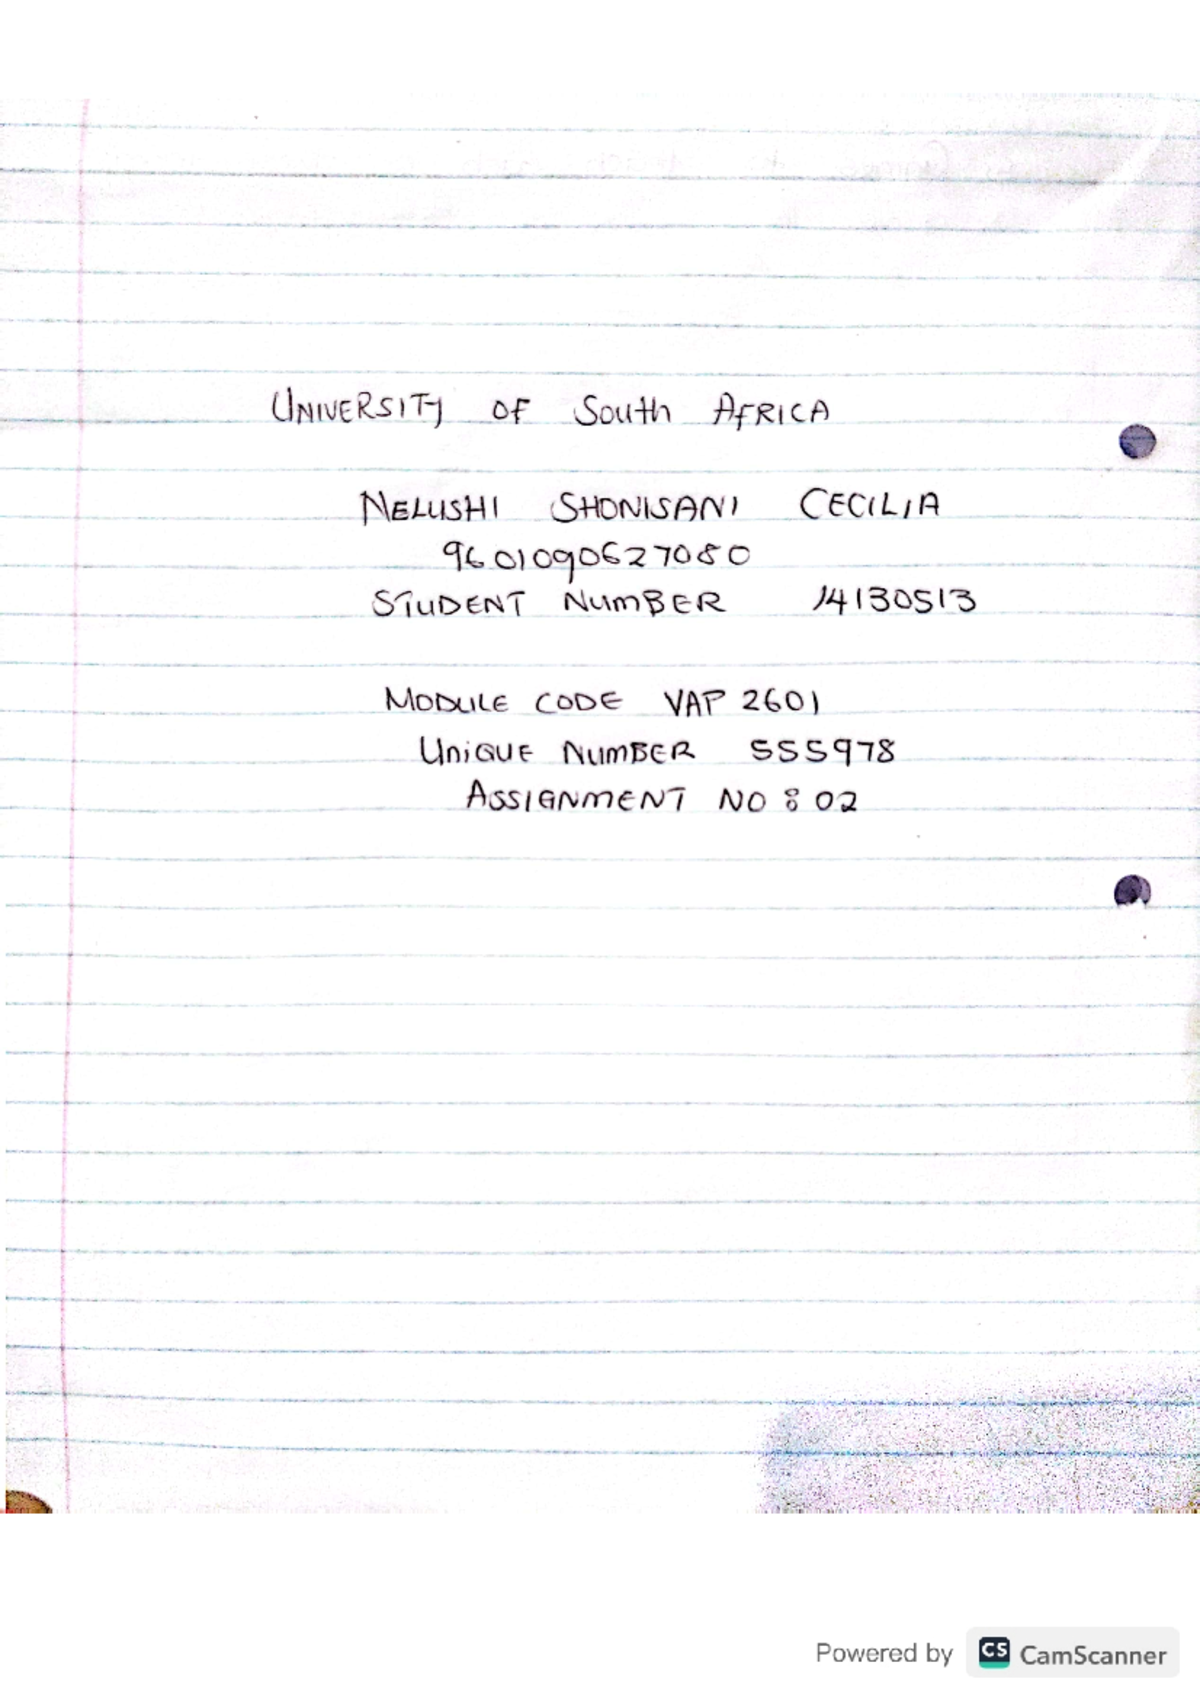 UNIVERSITY OF South AFRICA
NELUSHI SHONISANI CECILIA
9601090627080
STUDENT NUMBER 14130513
MODULE CODE VAP 2601
UNIQUE NUMBER 555978
ASSIGNMENT NO : 02
Powered by CS CamScanner